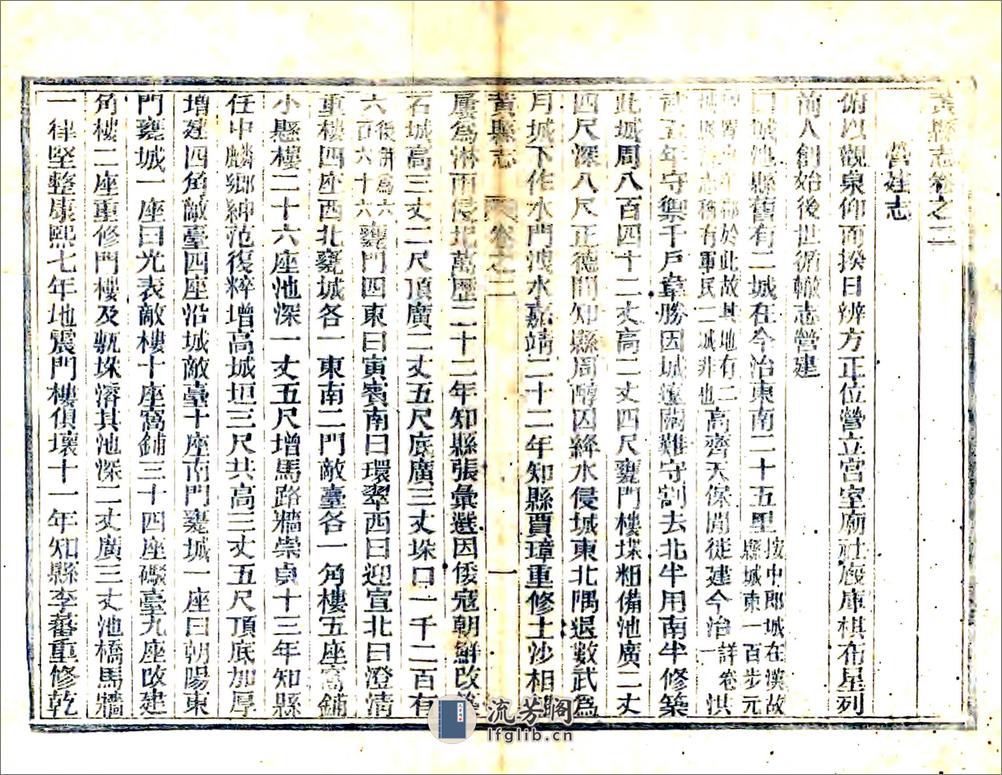 黃縣志卷之二
營建志
俯四觀泉仰而揆日辨方正位營立宮室廟社廏庫棋布星列
前人創始後世循轍志營建
城池縣舊有二城在今治東南二十五里按中郎城在漢故
縣城東一百步元
於此故其地有二
有重民二城非也高齊天保間徙建今治詳卷一洪
武五年守禦千戶韋勝因城遼闊難守割去北半用南半修築
此城周八百四十二丈高二丈四尺甕門樓堞粗備池廣二丈
四尺深八尺正德間知縣周因絳水侵城東北隅退數武為
月城下作水門洩水嘉靖二十二年知縣賈璋重修土沙相
黃縣志 卷之二 一
屢為淋雨侵圮萬歷二十二年知縣張彙選因倭寇朝鮮改
石城高三丈二尺頂廣二丈五尺底廣三丈垛口一千二百有
六後併為六百六十六甕門四東曰寅賓南曰環翠西曰迎宣北曰澄清
重樓四座西北甕城各一東南二門敵臺各一角樓五座窩鋪
小懸樓二十六座池深一丈五尺增馬路牆崇貞十三年知縣
任中麟鄉紳范復粹增高城垣三尺共高三丈五尺頂底加厚
增建四角敵臺四座沿城敵臺十座南門甕城一座曰朝陽東
門甕城一座曰光表敵樓十座窩鋪三十四座礮臺九座改建
角樓二座重修門樓及垛濬其池深二丈廣三丈池橋馬牆
一律堅整康熙七年地震門樓俱壞十一年知縣李蕃重修乾
流芳閣
lfglib.cn